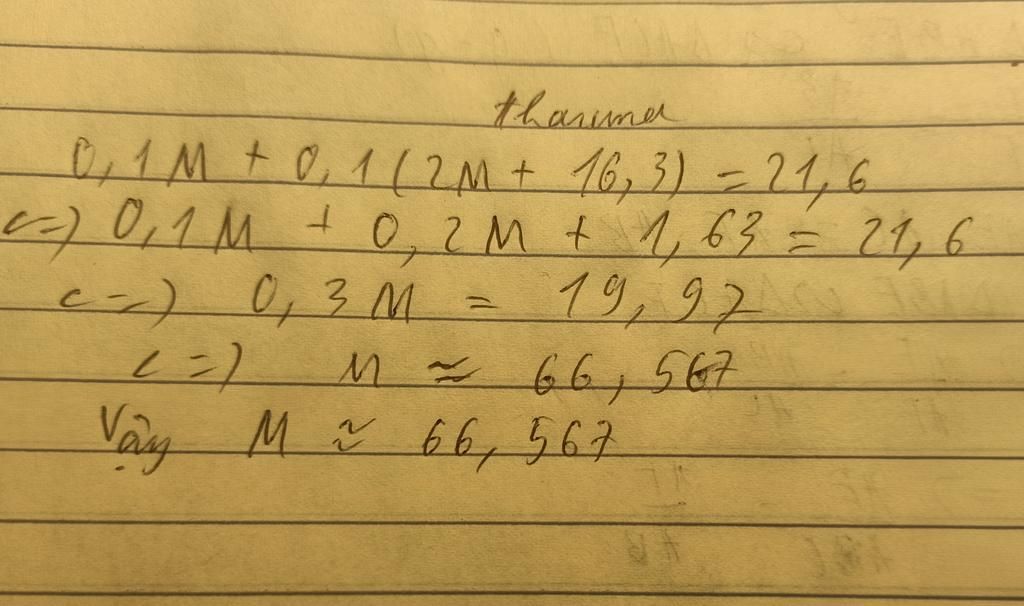 tharuma
0,1M + 0,1(2M + 16,3) = 21,6
<=> 0,1M + 0,2M + 1,63 = 21,6
<=> 0,3M = 19,97
<=> M ≈ 66,567
Vậy M ≈ 66,567